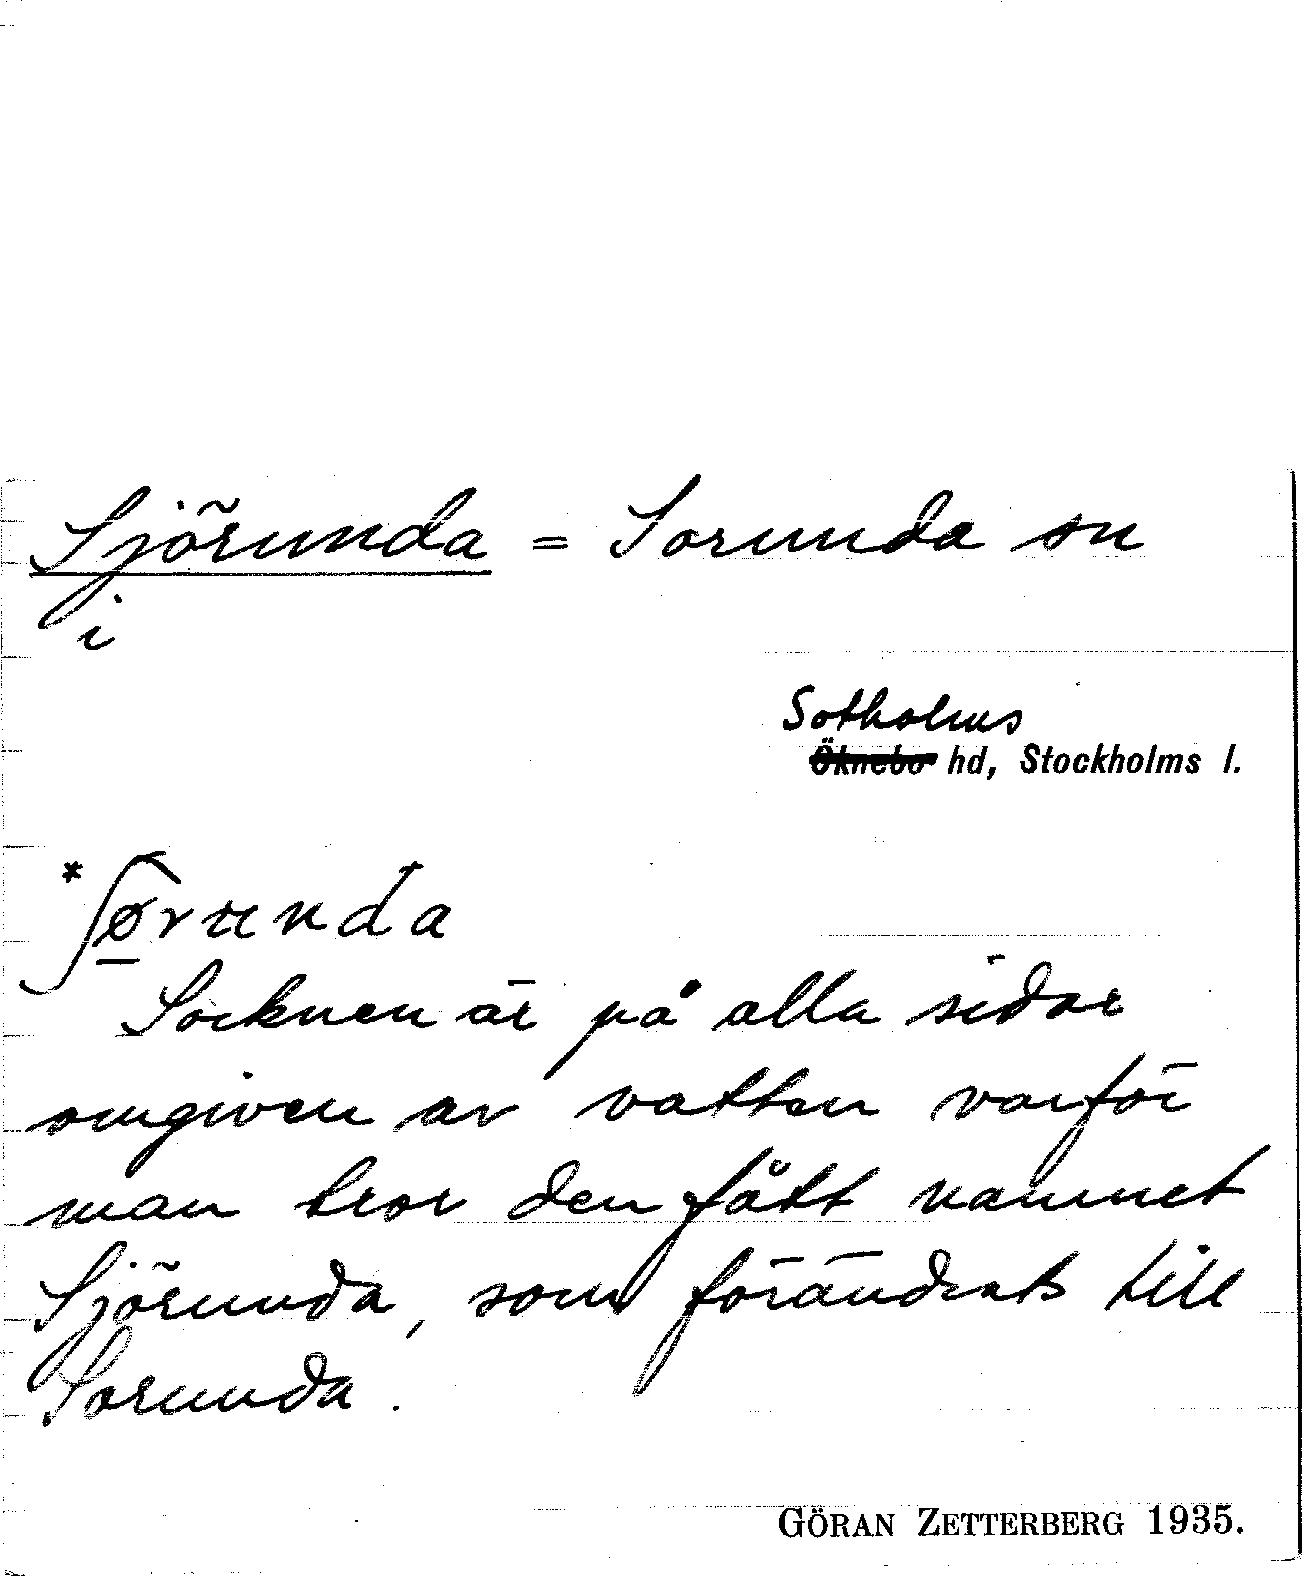 Sjörunda = Sorunda sn
i
Sotholms
Öknebo hd, Stockholms l.
*ʃørunda
Socknen är på alla sidor
omgiven av vatten varför
man tror den fått namnet
Sjörunda, som förändrats till
Sorunda.
GÖRAN ZETTERBERG 1935.